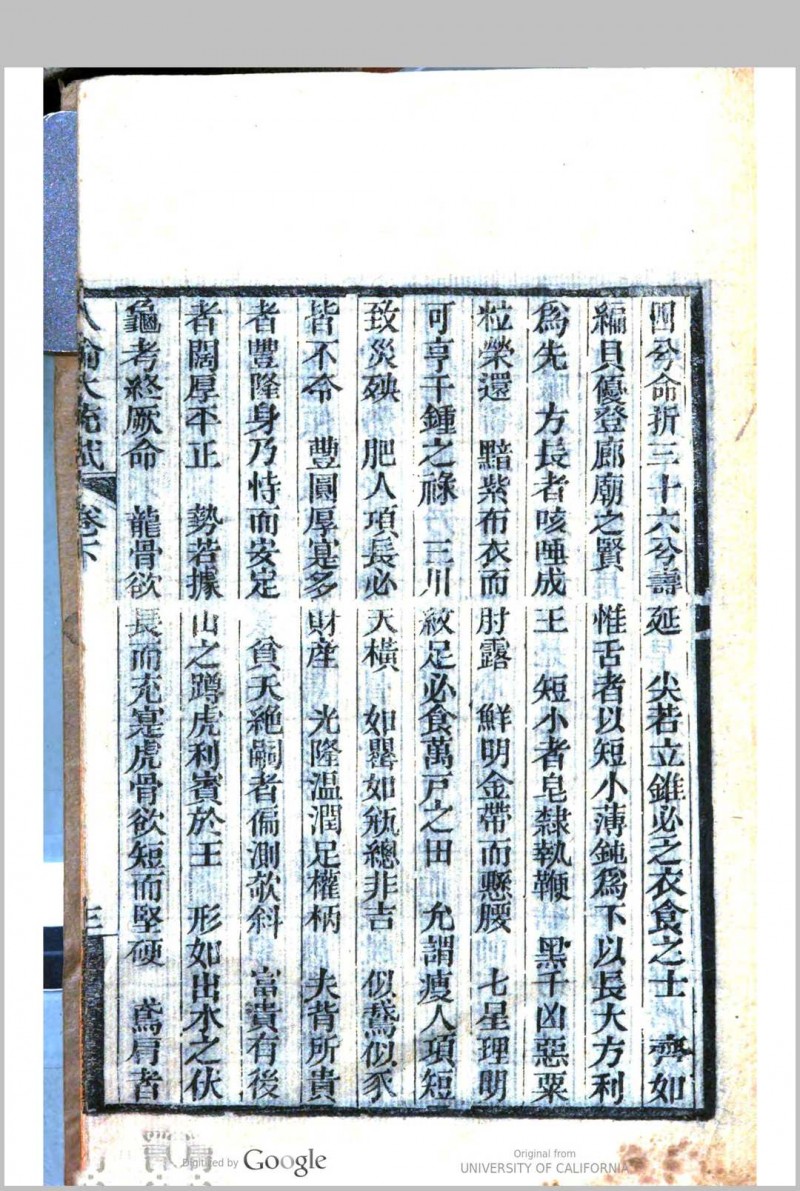 四兮命折三十六兮壽延　尖若立錐必乏衣食之士　齊如
編貝優登廊廟之賢　惟舌者以短小薄鈍爲下以長大方利
爲先　方長者咳唾成王　短小者皂隸執鞭　黑子凶惡粟
粒榮還　黯紫布衣而肘露　鮮明金帶而懸腰　七星理明
可享千鍾之祿　三川紋足必食萬戸之田　允謂瘦人項短
致災殃　肥人項長必夭橫　如罌如瓶總非吉　似鵞似豕
皆不令　豐圓厚寔多財産　光隆溫潤足權柄　夫背所貴
者豐隆身乃恃而安定　貧夭絶嗣者偏測欹斜　富貴有後
者闊厚平正　勢若據山之蹲虎利賓於王　形如出水之伏
龜考終厥命　龍骨欲長而充寔虎骨欲短而堅硬　鳶肩者
人倫大統賦　卷下
Digitized by Google
Original from
UNIVERSITY OF CALIFORNIA